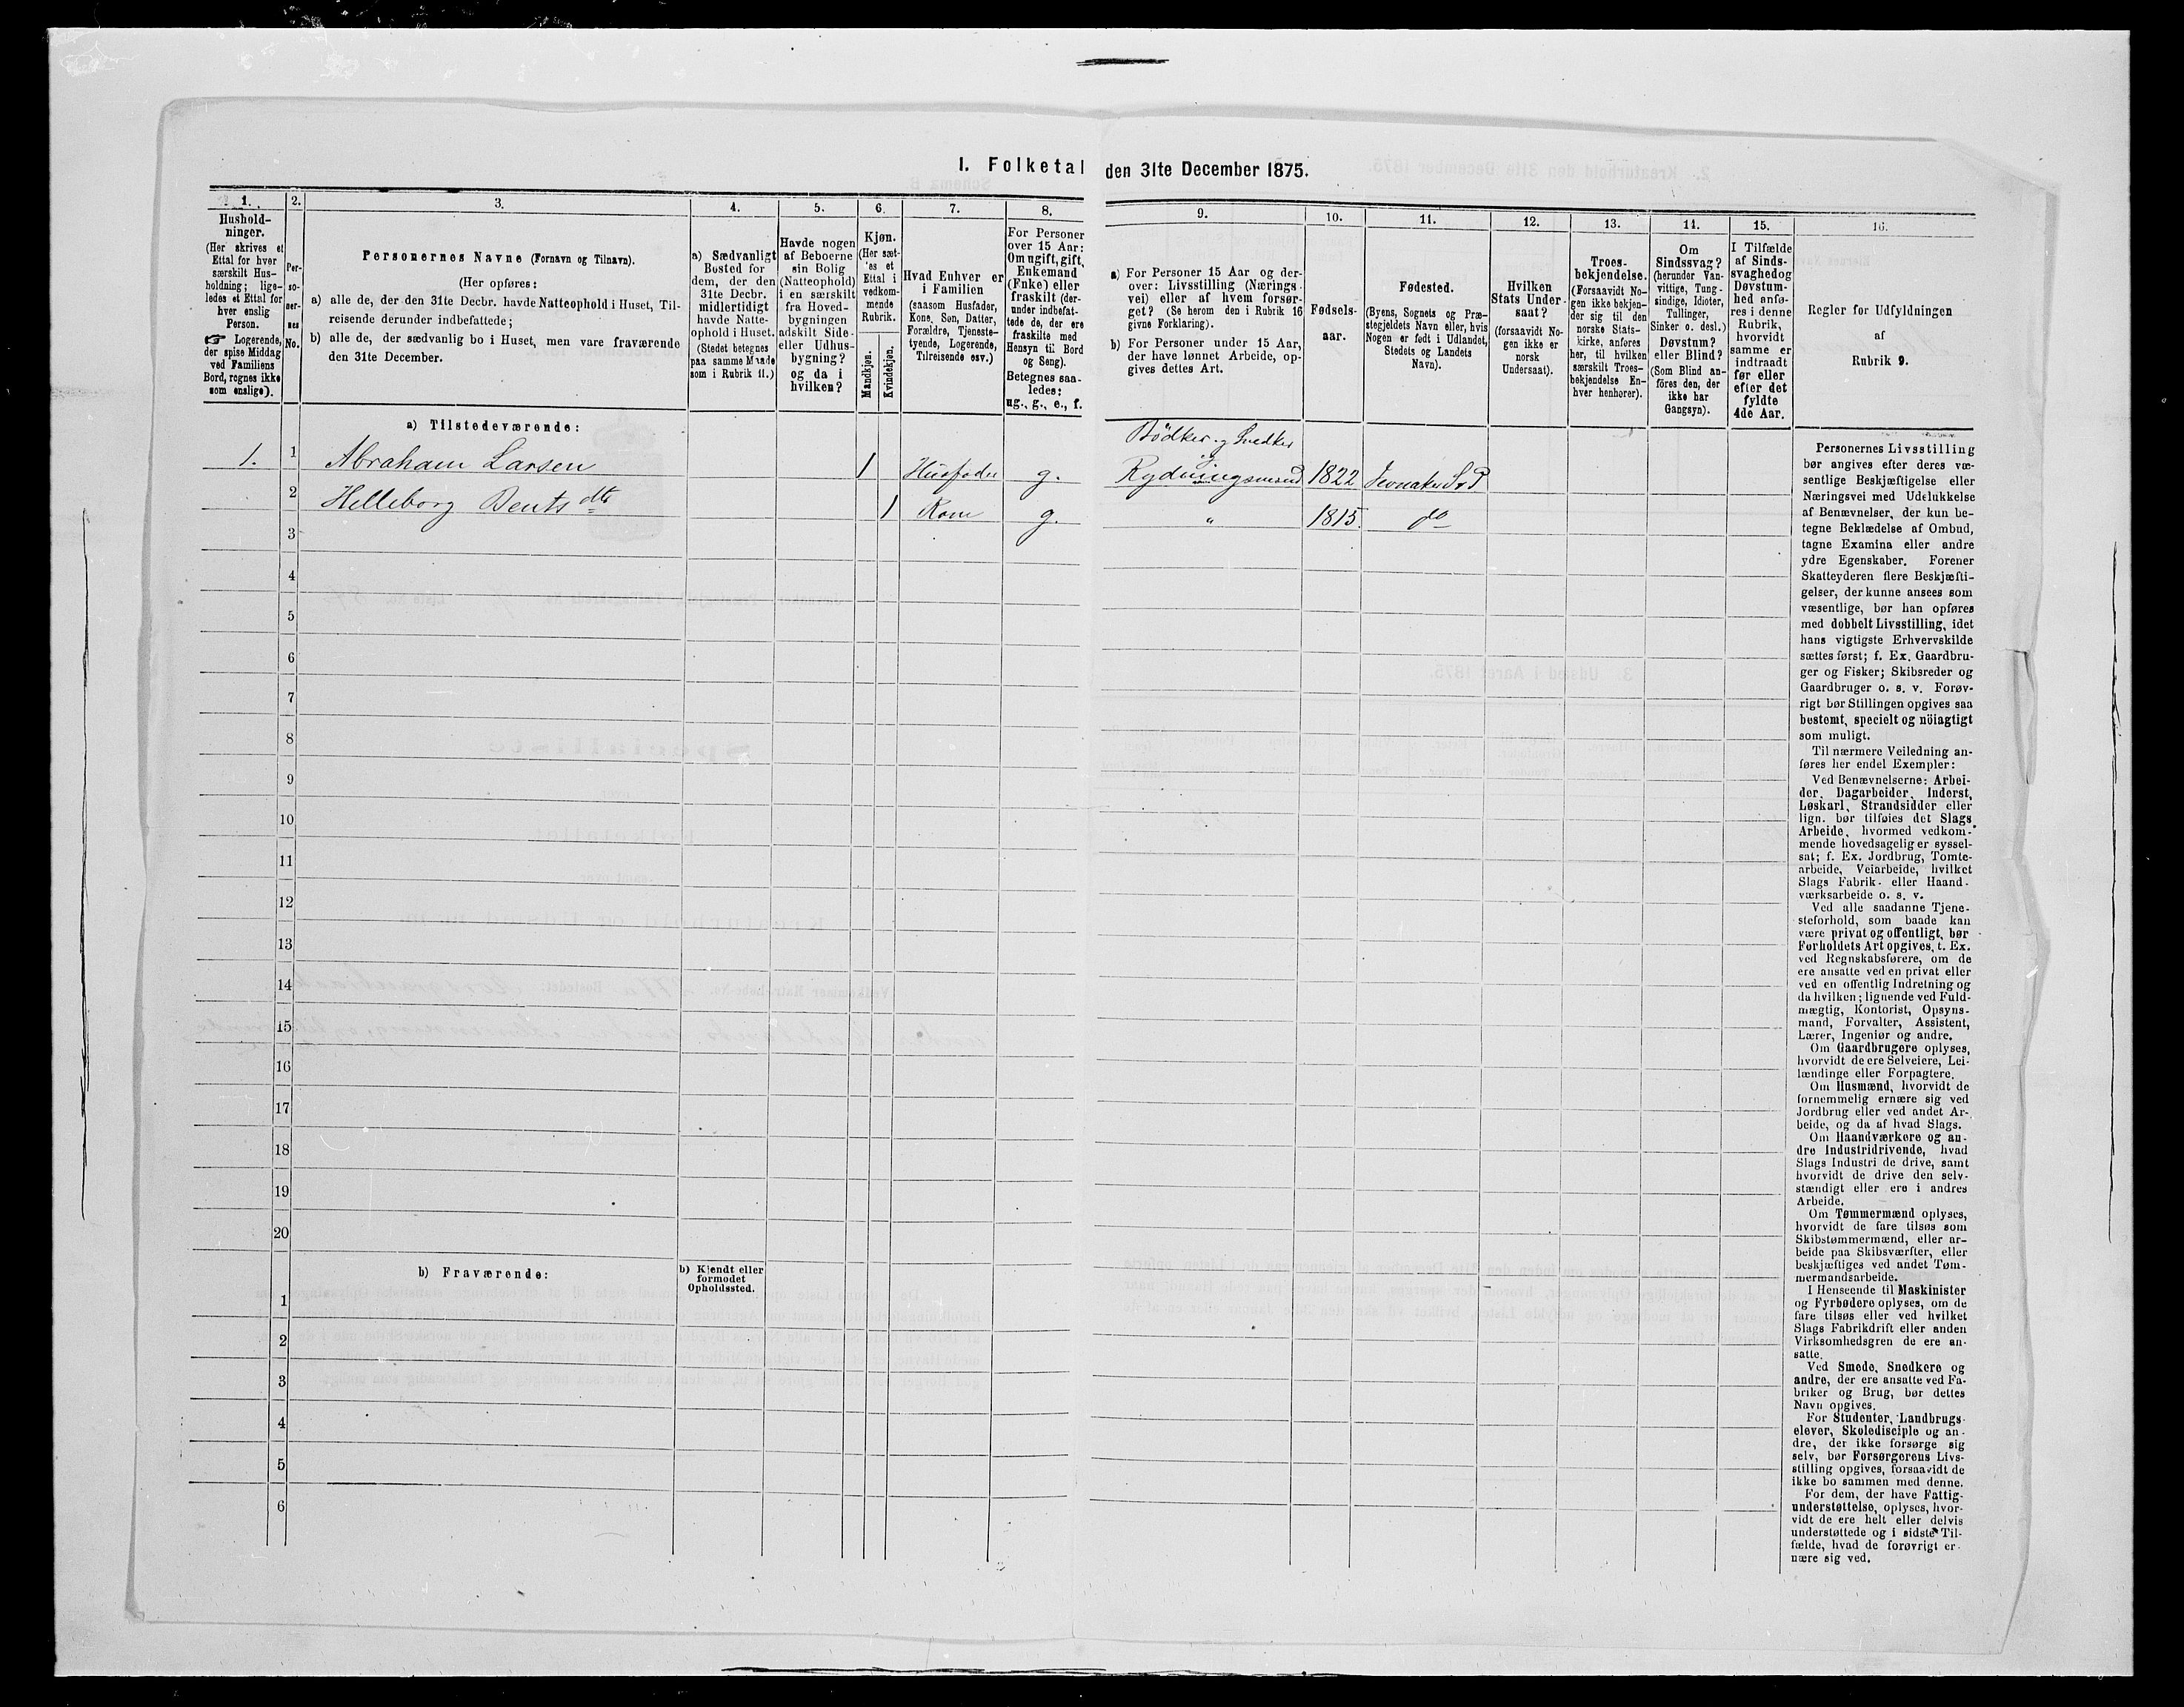 I. Folketal den 31te December 1875.
1.
Hushold-
ninger.
(Her skrives et
Ettal for hver
særskilt Hus-
holdning; lige-
ledes et Ettal for
hver enslig
Person.
☞ Logerende,
der spise Middag
ved Familiens
Bord, regnes ikke
som enslige).
2.
Per-
so-
ner-
nes
No.
3.
Personernes Navne (Fornavn og Tilnavn).
(Her opføres:
a) alle de, der den 31te Decbr. havde Natteophold i Huset, Til-
reisende derunder indbefattede;
b) alle de, der sædvanlig bo i Huset, men vare fraværende
den 31te December.
4.
a) Sædvanligt
Bosted for
dem, der den
31te Decbr.
midlertidigt
havde Natte-
ophold i Huset.
(Stedet betegnes
paa samme Maade
som i Rubrik 11.)
5.
Havde nogen
af Beboerne
sin Bolig
(Natteophold)
i en særskilt
fra Hoved-
bygningen
adskilt Side-
eller Udhus-
bygning?
og da i
hvilken?
6.
Kjøn.
(Her sæt-
tes et
Ettal i
vedkom-
mende
Rubrik.
Mandkjøn.
Kvindekjøn.
7.
Hvad Enhver er
i Familien
(saasom Husfader,
Kone, Søn, Datter,
Forældre, Tjeneste-
tyende, Logerende,
Tilreisende osv.)
8.
For Personer
over 15 Aar:
Om ugift, gift,
Enkemand
(Enke) eller
fraskilt (der-
under indbefat-
tede de, der ere
fraskilte med
Hensyn til Bord
og Seng).
Betegnes saa-
ledes:
ug., g., e., f.
9.
a) For Personer 15 Aar og der-
over: Livsstilling (Nærings-
vei) eller af hvem forsør-
get? (Se herom den i Rubrik 16
givne Forklaring).
b) For Personer under 15 Aar,
der have lønnet Arbeide, op-
gives dettes Art.
10.
Fødsels-
aar.
11.
Fødested.
(Byens, Sognets og Præ-
stegjeldets Navn eller, hvis
Nogen er født i Udlandet,
Stedets og Landets
Navn).
12.
Hvilken
Stats Under-
saat?
(forsaavidt No-
gen ikke er
norsk
Undersaat).
13.
Troes-
bekjendelse.
(Forsaavidt No-
gen ikke bekjen-
der sig til den
norske Stats-
kirke, anføres
her, til hvilken
særskilt Troes-
bekjendelse En-
hver henhører).
14.
Om
Sindssvag?
(herunder Van-
vittige, Tung-
sindige, Idioter,
Tullinger,
Sinker o. desl.)
Døvstum?
eller Blind?
(Som Blind an-
føres den, der
ikke har
Gangsyn).
15.
I Tilfælde
af Sinds-
svaghedog
Døvstum-
hed anfø-
res i denne
Rubrik,
hvorvidt
samme er
indtraadt
før eller
efter det
fyldte
4de Aar.
16.
Regler for Udfyldningen
af
Rubrik 9.
a) Tilstedeværende:
Bödker og Snedker
1. 1 Abraham Larsen 1 Husfader g. Rydningsmand 1822 Jevnaker S & P
2 Helleborg Bentsdtr 1 Kone g. " 1815. do
3
4
5
6
7
8
9
10
11
12
13
14
15
16
17
18
19
20
b) Fraværende:
b) Kjendt eller
formodet
Opholdssted.
1
2
3
4
5
6
Personernes Livsstilling
bør angives efter deres væ-
sentlige Beskjæftigelse eller
Næringsvei med Udelukkelse
af Benævnelser, der kun be-
tegne Beklædelse af Ombud,
tagne Examina eller andre
ydre Egenskaber. Forener
Skatteyderen flere Beskjæfti-
gelser, der kunne ansees som
væsentlige, bør han opføres
med dobbelt Livsstilling, idet
hans vigtigste Erhvervskilde
sættes først; f. Ex. Gaardbru-
ger og Fisker; Skibsreder og
Gaardbruger o. s. v. Forøv-
rigt bør Stillingen opgives saa
bestemt, specielt og nöiagtigt
som muligt.
Til nærmere Veiledning an-
føres her endel Exempler:
Ved Benævnelserne: Arbei-
der, Dagarbeider, Inderst,
Løskarl, Strandsidder eller
lign. bør tilføies det Slags
Arbeide, hvormed vedkom-
mende hovedsagelig er syssel-
sat; f. Ex. Jordbrug, Tomte-
arbeide, Veiarbeide, hvilket
Slags Fabrik- eller Haand-
værksarbeide o. s. v.
Ved alle saadanne Tjene-
steforhold, som baade kan
være privat og offentligt, bør
Forholdets Art opgives, t. Ex.
ved Regnskabsførere, om de
ere ansatte ved en privat eller
ved en offentlig Indretning og
da hvilken; lignende ved Fuld-
mægtig, Kontorist, Opsyns-
mand, Forvalter, Assistent,
Lærer, Ingeniør og andre.
Om Gaardbrugere oplyses,
hvorvidt de ere Selveiere, Lei-
lændinge eller Forpagtere.
Om Husmænd, hvorvidt de
fornemmelig ernære sig ved
Jordbrug eller ved andet Ar-
beide, og da af hvad Slags.
Om Haandværkere og an-
dre Industridrivende, hvad
Slags Industri de drive, samt
hvorvidt de drive den selv-
stændigt eller ere i andres
Arbeide.
Om Tømmermænd oplyses,
hvorvidt de fare tilsøs som
Skibstømmermænd, eller ar-
beide paa Skibsværfter, eller
beskjæftiges ved andet Tøm-
mermandsarbeide.
I Henseende til Maskinister
og Fyrbødere oplyses, om de
fare tilsøs eller ved hvilket
Slags Fabrikdrift eller anden
Virksomhedsgren de ere an-
satte.
Ved Smede, Snedkere og
andre, der ere ansatte ved Fa-
briker og Brug, bør dettes
Navn opgives.
For Studenter, Landbrugs-
elever, Skoledisciple og an-
dre, der ikke forsørge sig
selv, bør Forsørgerens Livs-
stilling opgives, forsaavidt de
ikke bo sammen med denne.
For dem, der have Fattig-
understøttelse, oplyses, hvor-
vidt de ere helt eller delvis
understøttede og i sidste Til-
fælde, hvad de forøvrigt er-
nære sig ved.